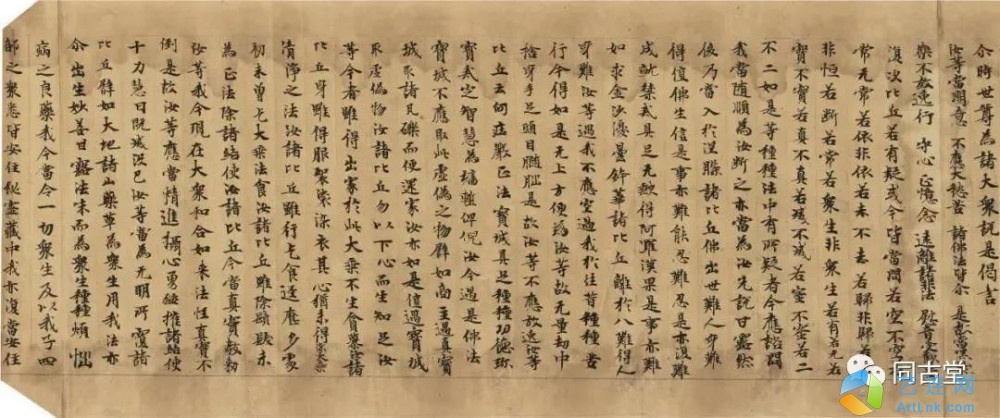 尒時世尊為諸大衆說是偈言
汝等當開意 不應大愁苦 諸佛法皆尒 是故當
樂不放逸行 守心正憶念 遠離諸非法 慰意受歡
復次比丘若有疑或今皆當問若空不空
常无常若依非依若去不去若歸非歸若
非恒若断若常若衆生非衆生若有若无若
寶不實若真不真若滅不滅若蜜不蜜若二
不二如是等種種法中有所疑者今應諮問
我當随順為汝断之亦當為汝先說甘露然
後乃當入於涅槃諸比丘佛出世難人身難
得值佛生信是事亦難能忍難忍是亦復難
成就禁戒具足无缺得阿羅漢果是事亦難
如求金沙優曇鉢華諸比丘離於八難得人
身難汝等遇我不應空過我於往昔種種苦
行今得如是无上方便為汝等故无量劫中
捨身手足頭目髓𦝫是故汝等不應放逸汝等
比丘云何庄嚴正法寶城具足種種功德珎
寶戒定智慧為墻壍俾倪汝今遇是佛法
寶城不應取此虛偽之物譬如商主遇真寶
城取諸凡礫而便還家汝亦如是值遇寶城
取虛偽物汝諸比丘勿以下心而生知足汝
等今者雖得出家於此大乘不生貪慕諸
比丘身雖得服袈裟染衣其心猶未得染大乘
清淨之法汝諸比丘雖行乞食逕應多處
初未曾乞大乘法食汝諸比丘雖除鬚髮未
為正法除諸結使汝諸比丘今當真實教勅
汝等我今現在大衆和合如来法性真實不
倒是故汝等應當精進攝心勇猛摧諸結使
十力慧日既滅没已汝等當為无明所覆諸
比丘譬如大地諸山藥草為衆生用我法亦
尒出生妙善甘露法味而為衆生種種煩惱
病之良藥我今當令一切衆生及以我子四
部之衆悉皆安住秘蜜藏中我亦復當安住
同古堂
艺连网
ArtLnk.com